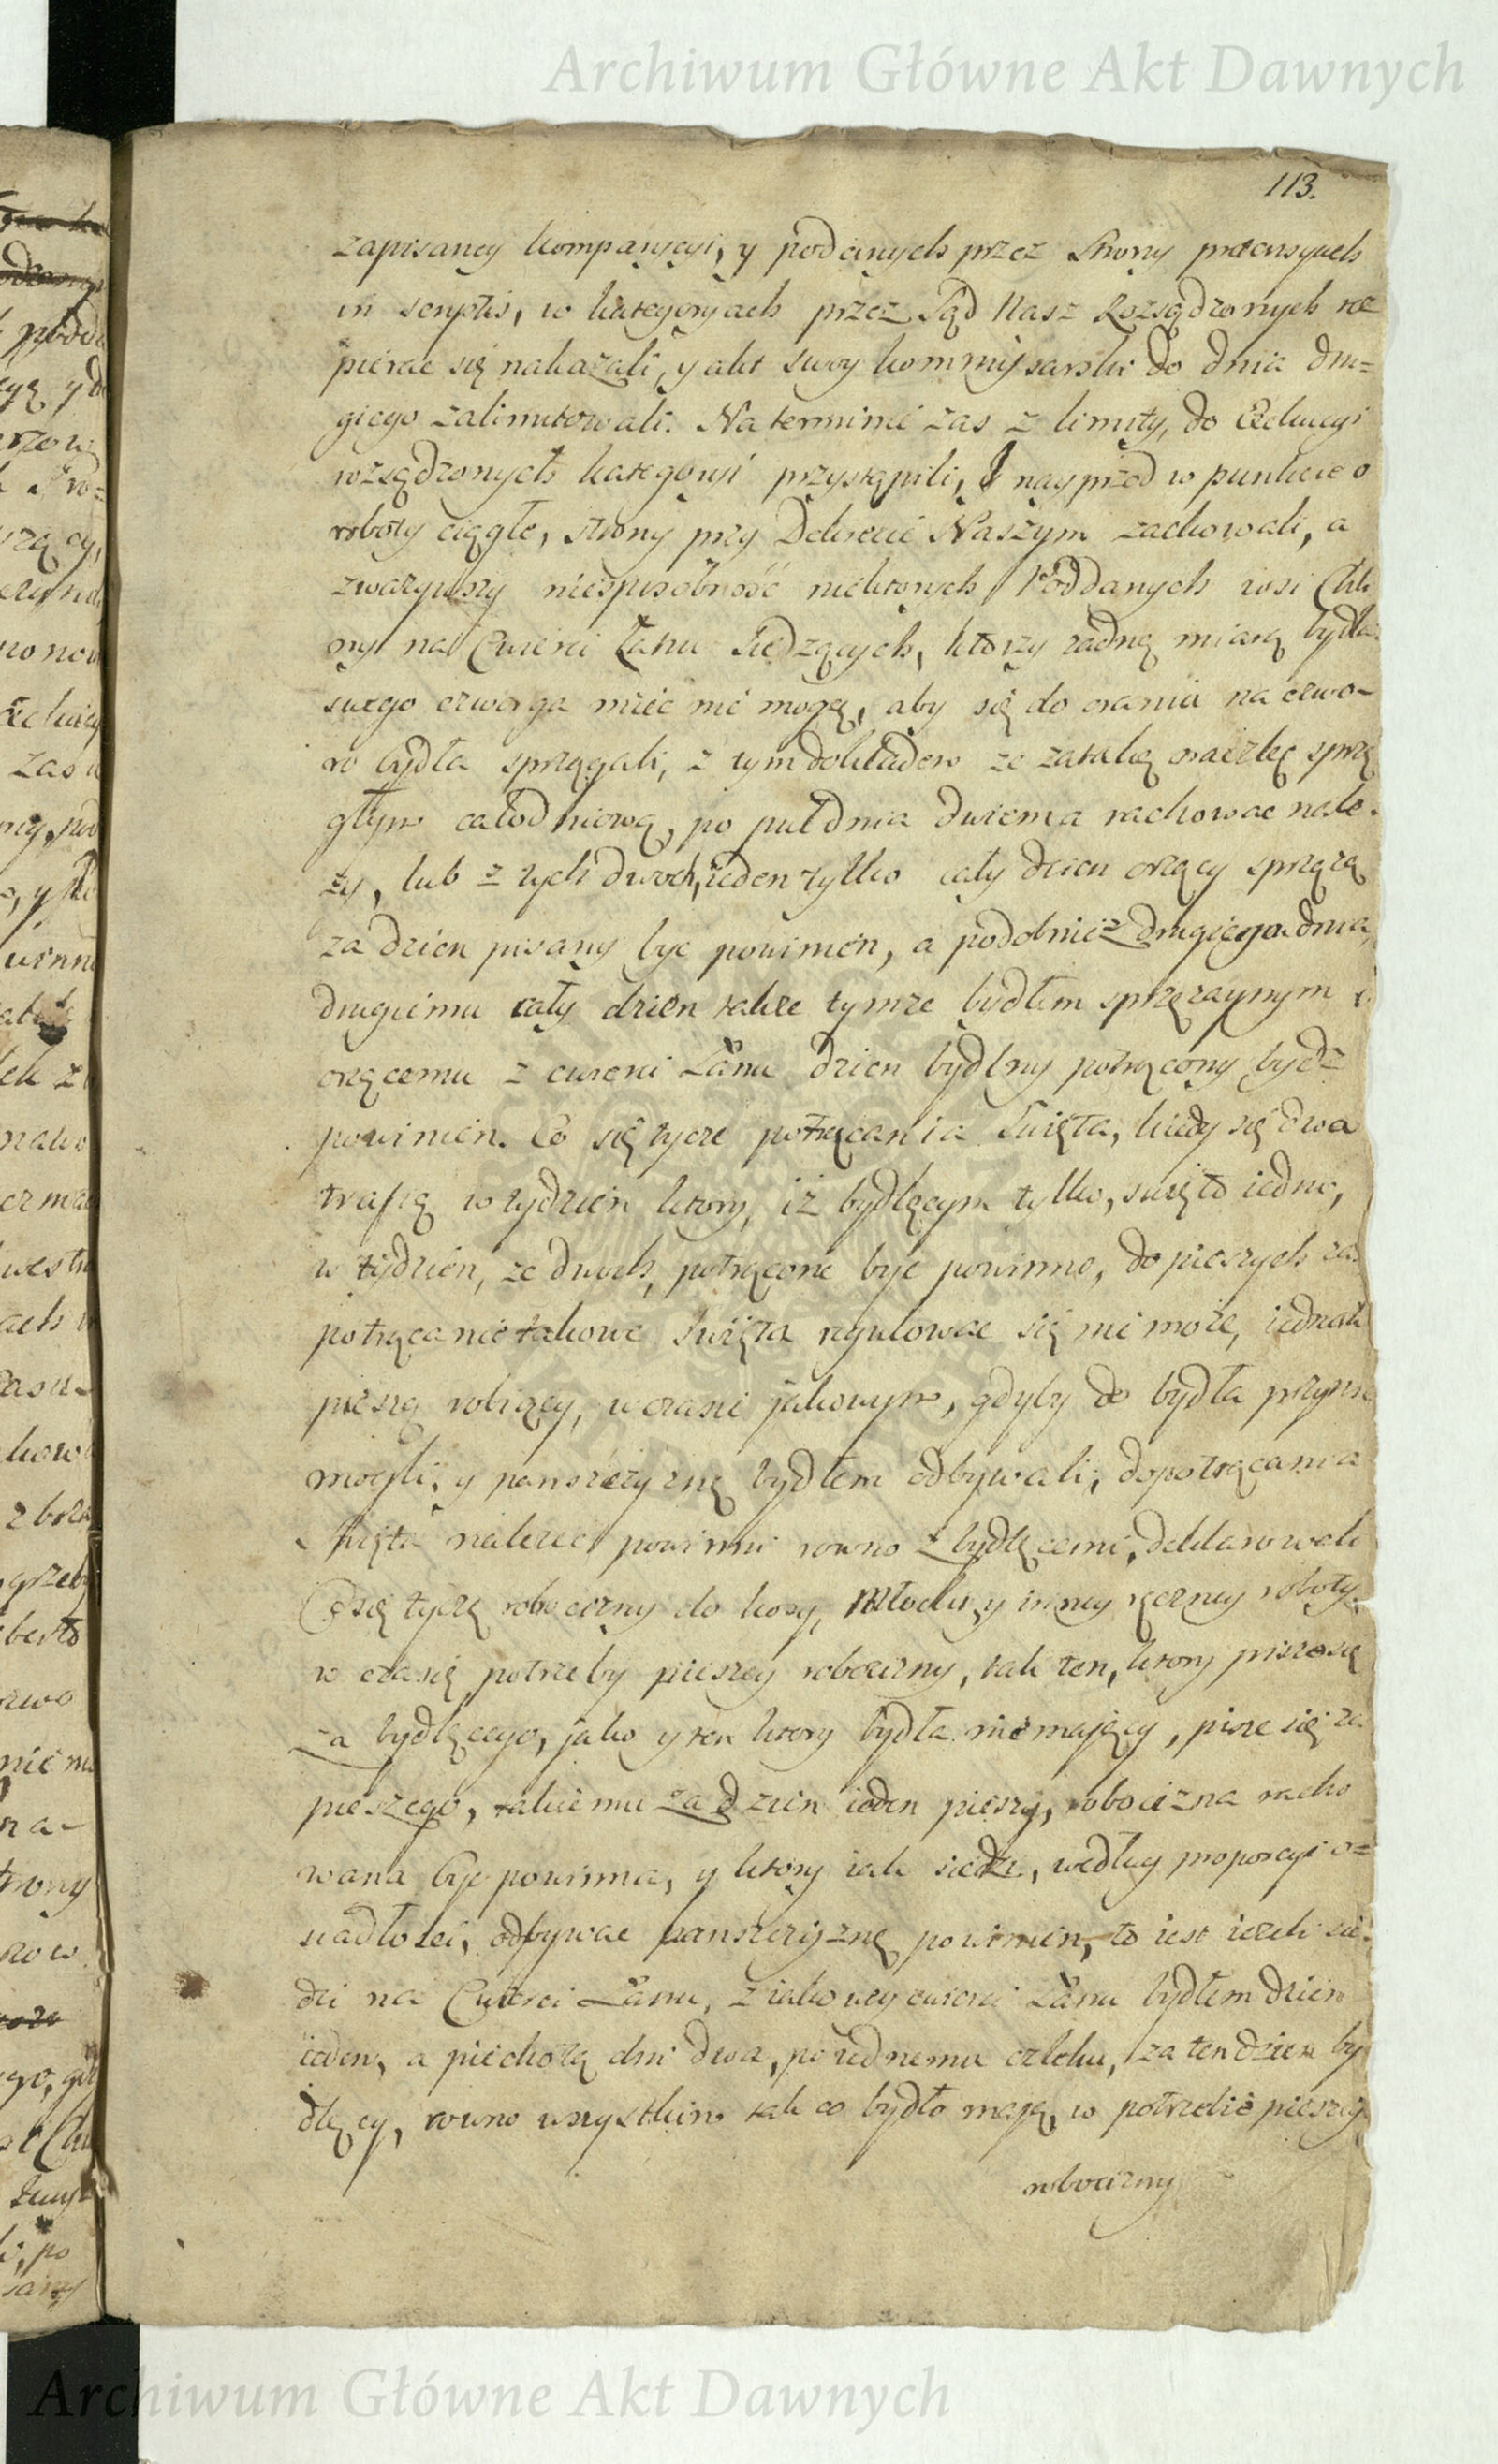 Archiwum Główne Akt Dawnych
113.
zapisaney kompanycyi, y podanych przez Strony
in scriptis, w kategoryach przez Sąd Nasz Rozsądzonych roz
pierac się nakazali, y akt swoy kommissarski do dnia dru=
giego zalimitowali. Na terminie zas z limity, do Exekucyi
rozsądzonych kategoryi przystąpili, y nayprzod w punkcie o
roboty ciągłe, strony przy Dekrecie Naszym zachowali, a
zwazywszy niesposobność niektorych Poddanych wsi
na Cwierci Łanu Siedzących, ktorzy zadną miarą bydła
swego czworga miec nie mogą, aby się do orania na czwo-
ro bydła sprzągali, z tym dokładem ze za taką oraczkę sprzę
głym całodniową, po puł dnia dwiema rachowac nale-
zy, lub z tych dwoch, ieden tylko cały dzien orzący sprzęzą
za dzien pisany byc powinien, a podobniez drugiego dnia,
drugiemu cały dzien takze tymze bydłem sprzęzaynym
orzącemu z cwierci Łanu dzien bydlny potrącony bydz
powinien. Co się tycze potrącania Święta, kiedy się dwa
trafią w tydzien ktory, iż bydlęcym tylko, swięto iedno,
w tydzien, ze dwoch, potrącone byc powinno, do pieszych zas
potrącanie takowe Święta regulowac się nie może, iednak
pieszą robiący, w czasie jakowym, gdyby do bydła przyisc
mogli, y panszczyznę bydłem odbywali, do potrącania
Święta nalezec powinni rowno z bydlęcemi, deklarowali
Co się tyczę robocizny do kosy, Młocki, y inney ręczney roboty
w czasię potrzeby pieszey robocizny, tak ten, ktory pisze się
za bydlęcego, jako y ten ktory bydła niemający, pisze się za
pieszego, takiemu za dzien ieden pieszy, robocizna racho
wana byc powinna, y ktory iak siedzi, według proporcyi o=
siadłosci, odbywac panszczyznę powinien, to iest iezeli sie-
dzi na Cwierci Łanu, z iakowey cwierci Łanu bydłem dzien
ieden, a piechotą dni dwa, po iednemu człeku, za ten dzien by
dlęcy, rowno wszystkim tak co bydło mają, w potrzebie pieszey
robocizny
Archiwum Główne Akt Dawnych